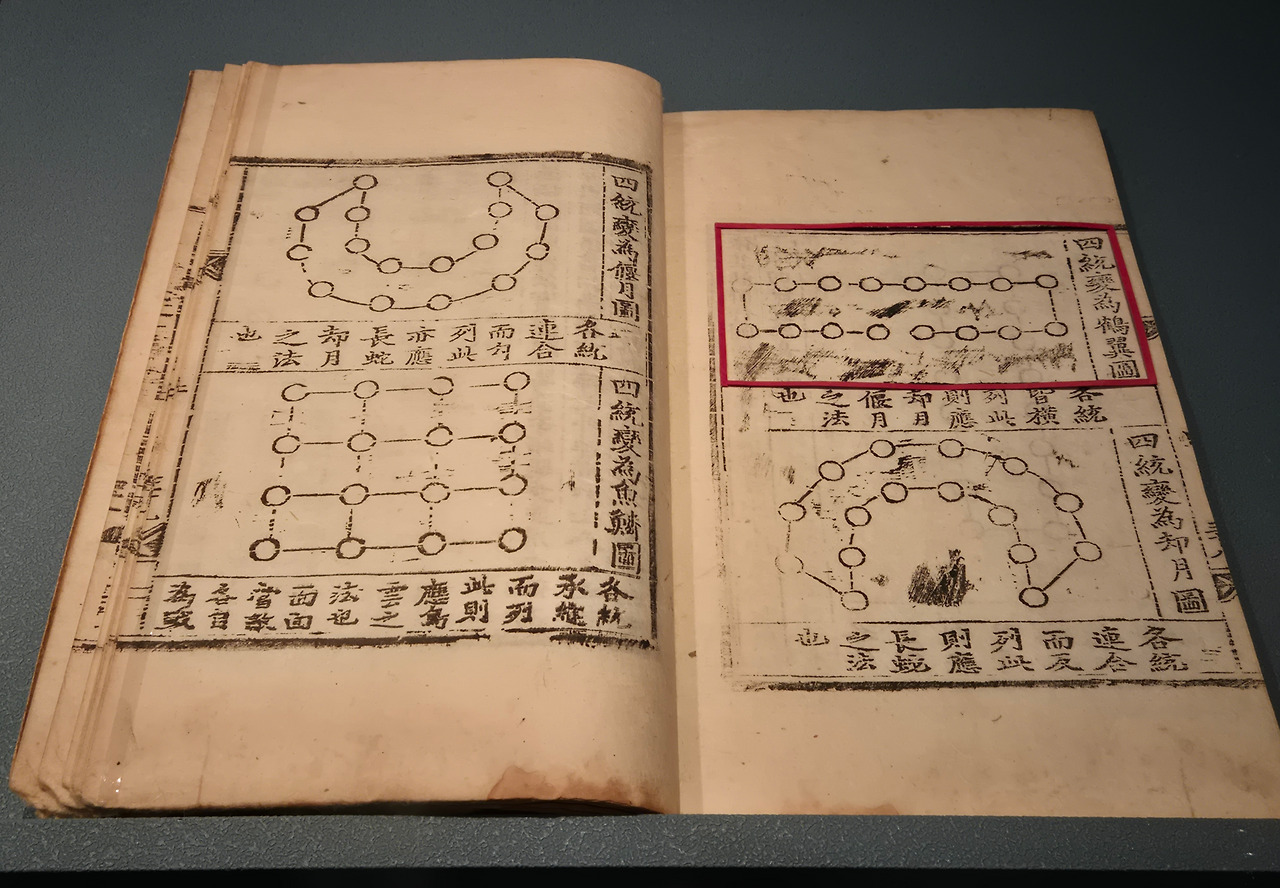 四統變為鶴翼圖
各統
皆橫
列此
則應
却月
偃月
之法
也
四統變為却月圖
各統
連合
而反
列此
則應
長蛇
之法
也
四統變為偃月圖
各統
連合
而
列此
亦應
長蛇
却月
之法
也
四統變為魚鱗圖
各統
承繼
而列
此則
應鳥
雲之
法也
面面
當敵
各自
為戰